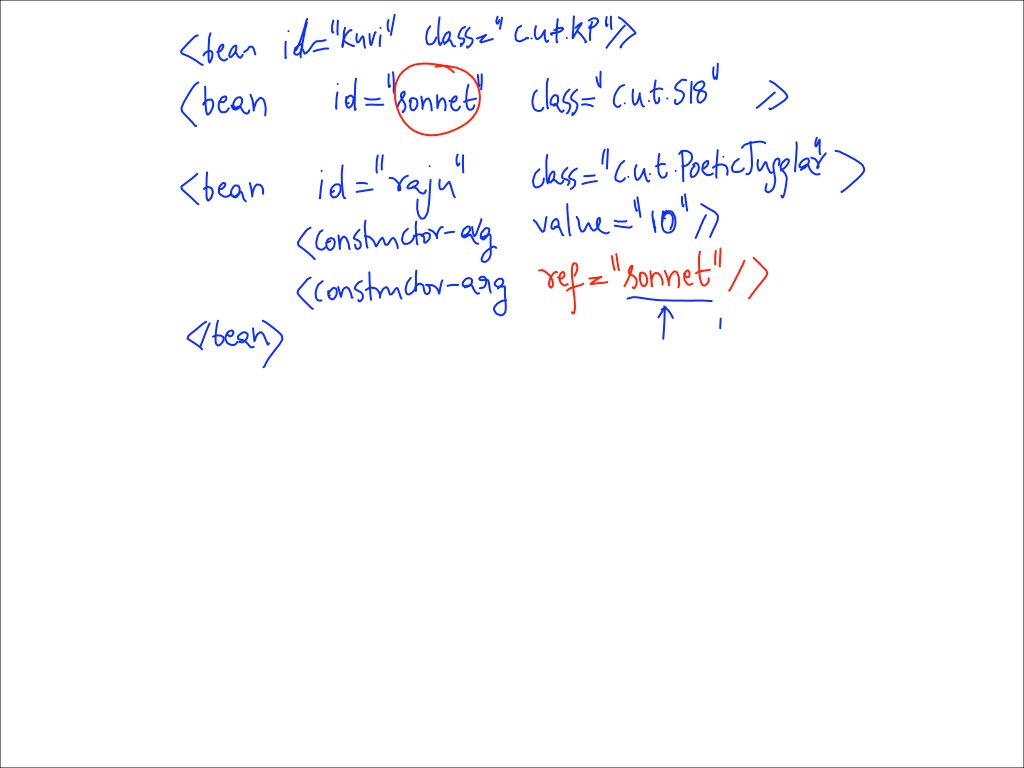 <bean id="Kuvi" class="c.u.t.KP"/>
<bean id="sonnet" class="c.u.t.S18" />
<bean id="raju" class="c.u.t.PoeticJugglar">
<constructor-arg value="10"/>
<constructor-arg ref="sonnet"/>
</bean>